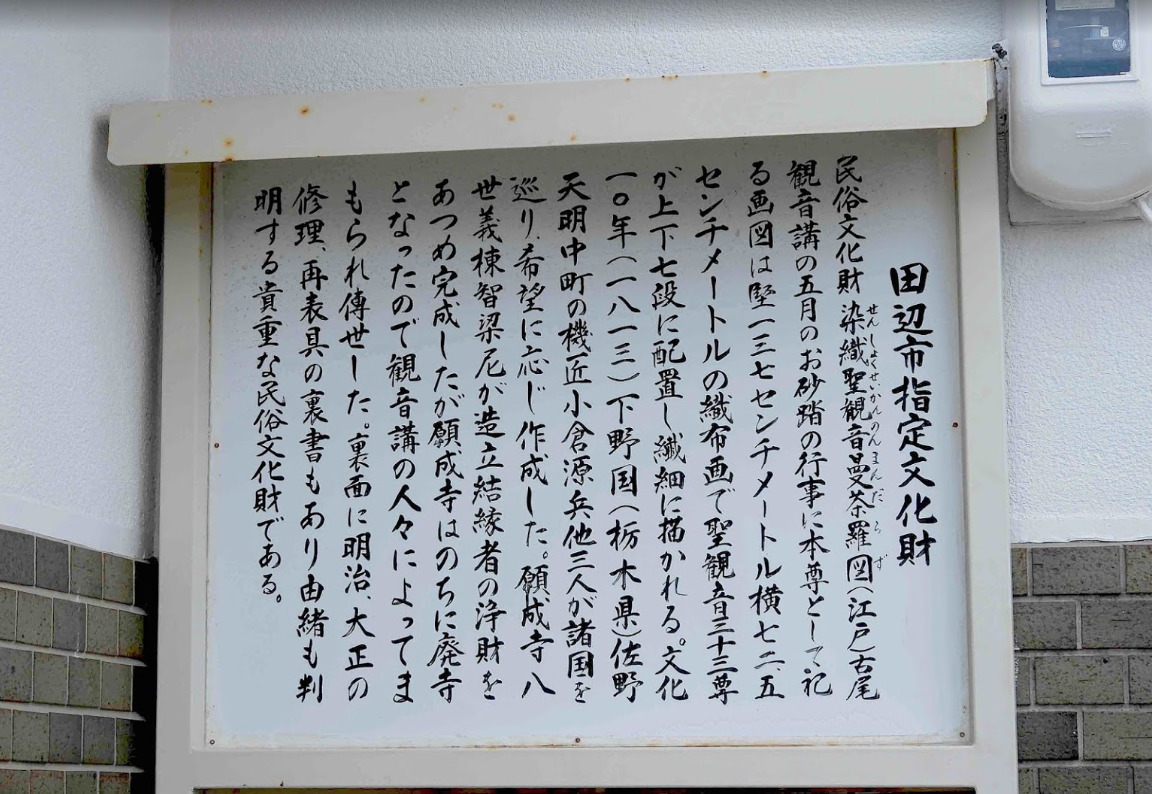 田辺市指定文化財
民俗文化財 染織聖観音曼荼羅図(江戸)古尾
せんしょくせいかんのんまんだらず
観音講の五月のお砂踏の行事に本尊として祀
る画図は堅一三七センチメートル横七二.五
センチメートルの織布画で聖観音三十三尊
が上下七段に配置し繊細に描かれる。文化
一〇年(一八一三)下野国(栃木県)佐野
天明中町の機匠小倉源兵他三人が諸国を
巡り、希望に応じ作成した。願成寺八
世義棟智梁尼が造立結縁者の浄財を
あつめ完成したが願成寺はのちに廃寺
となったので観音講の人々によってま
もられ傳世した。裏面に明治、大正の
修理、再表具の裏書もあり由緒も判
明する貴重な民俗文化財である。